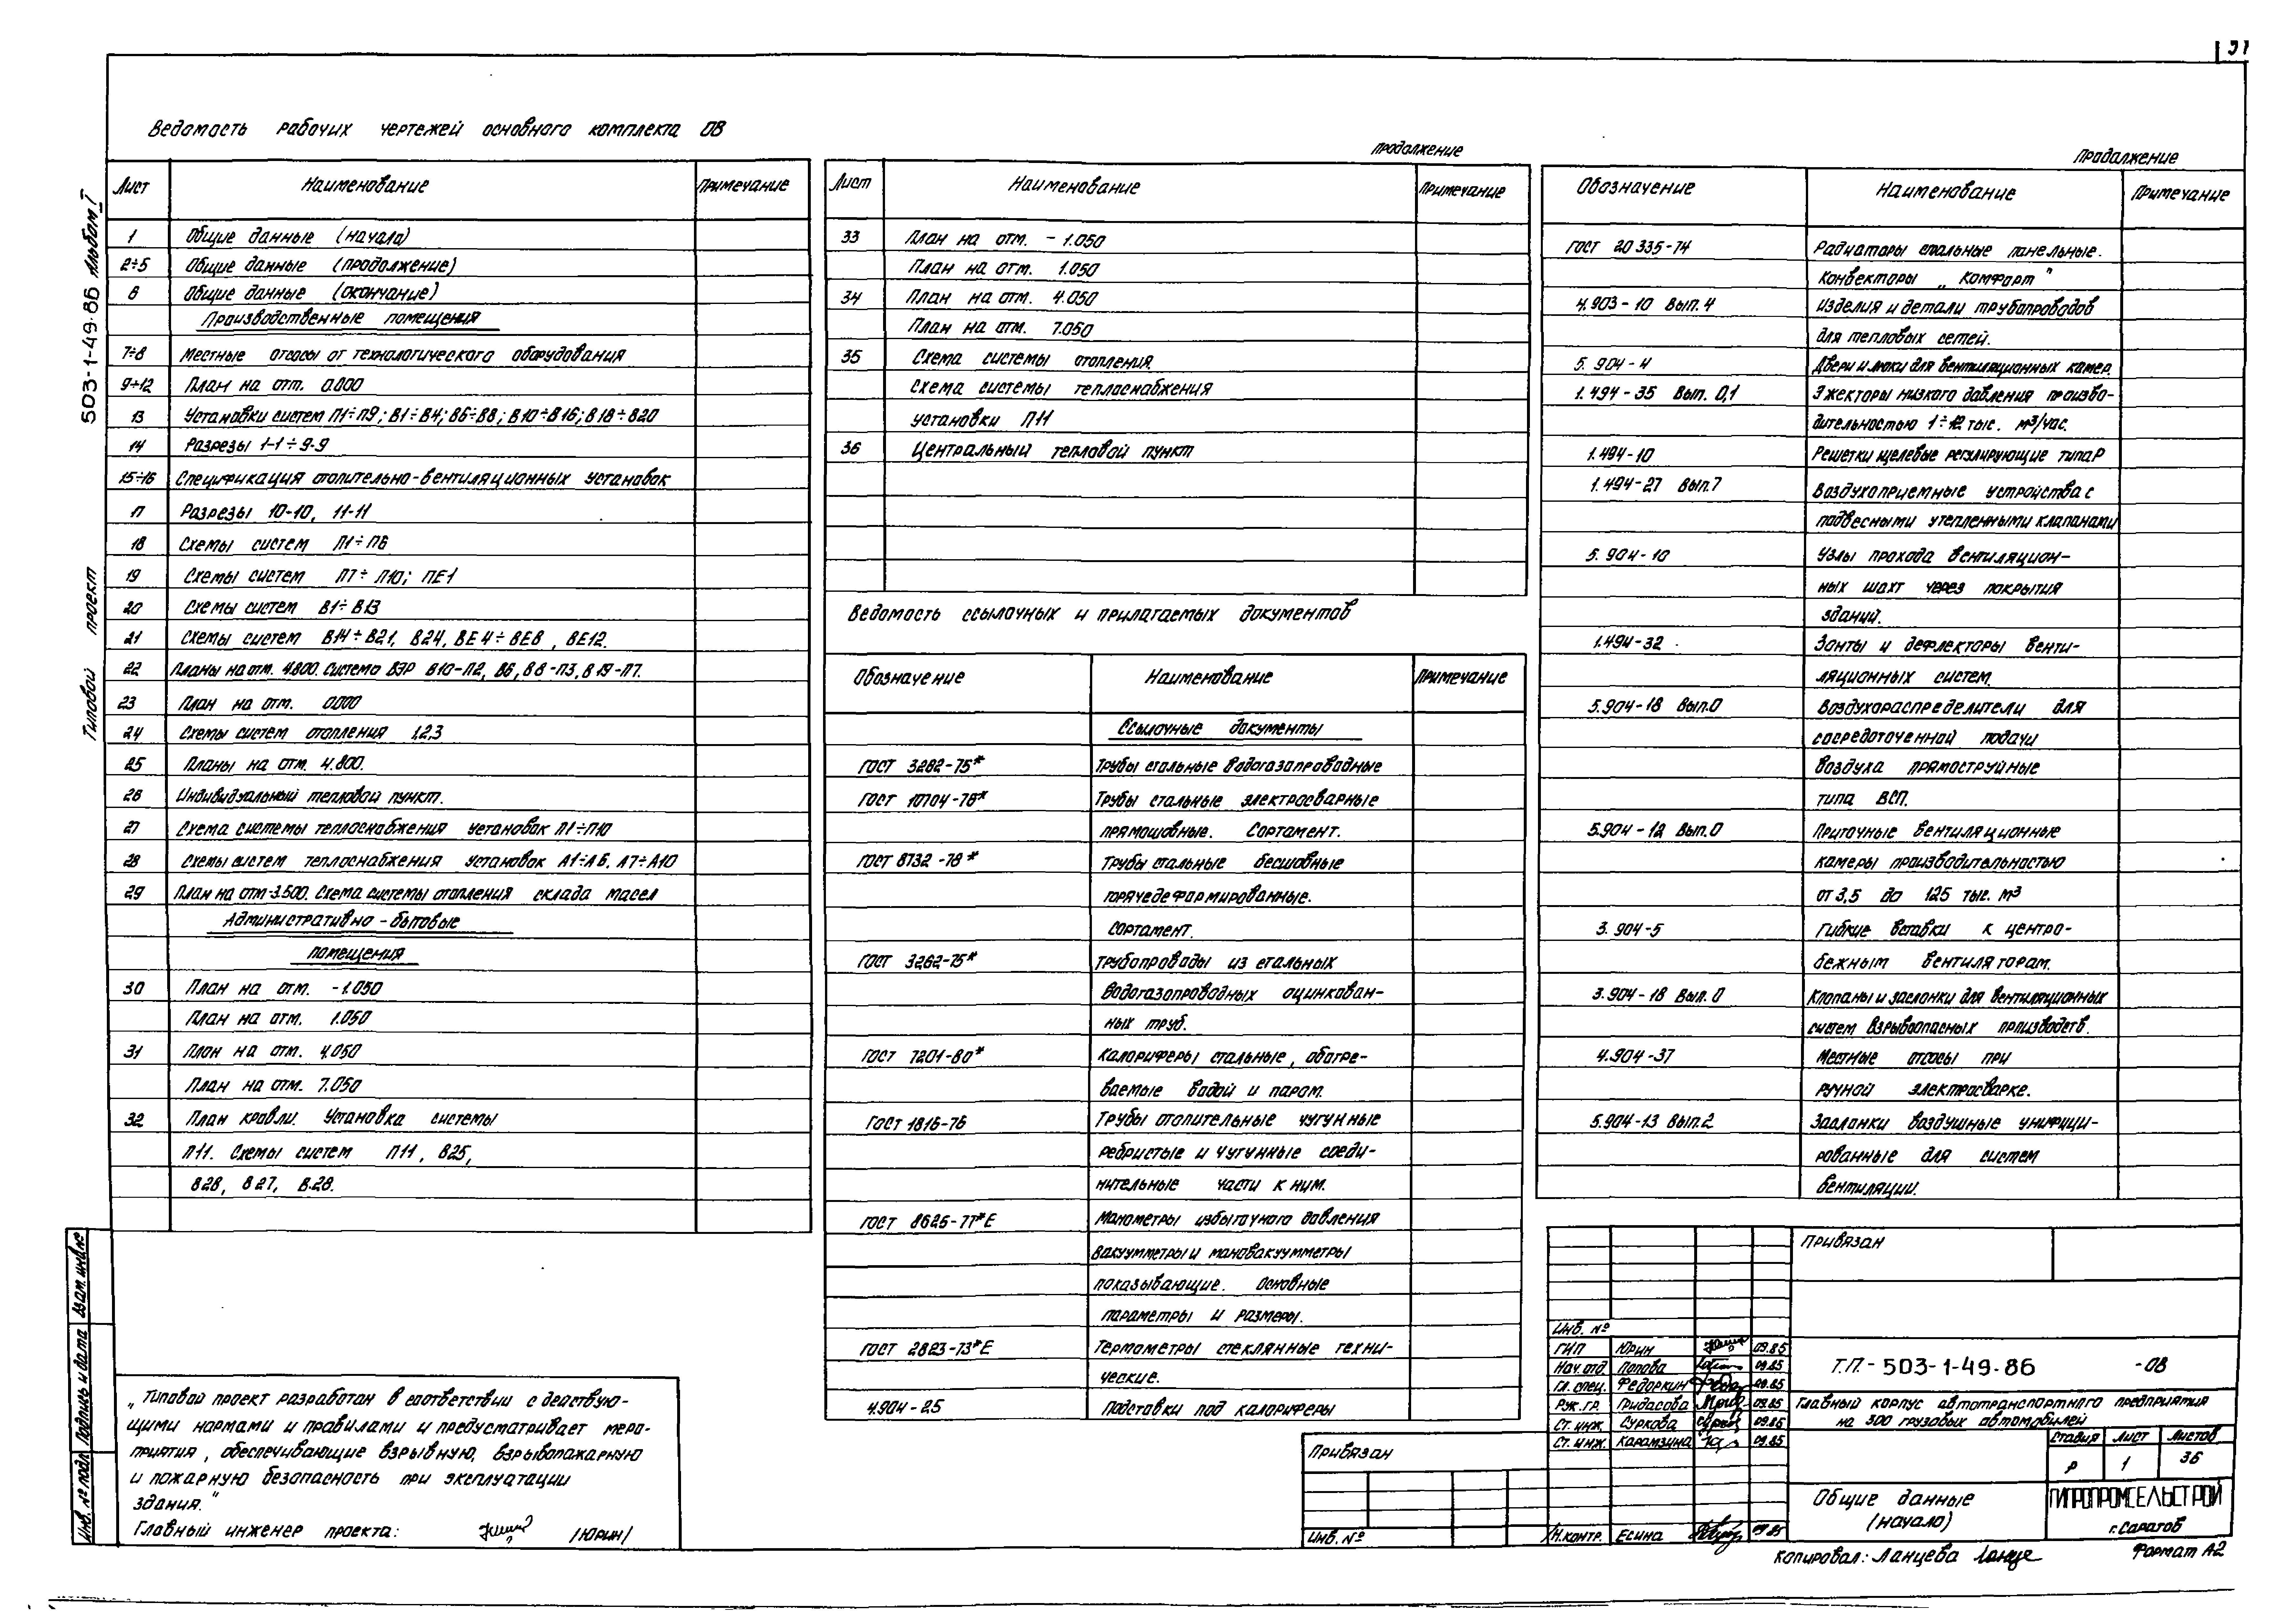 Ведомость рабочих чертежей основного комплекта ОВ
Лист Наименование Примечание
1 Общие данные (начало)
2÷5 Общие данные (продолжение)
6 Общие данные (окончание)
Производственные помещения
7÷8 Местные отсосы от технологического оборудования
9÷12 План на отм. 0.000
13 Установки систем П1÷П9; В1÷В4; В6÷В8; В10÷В16; В18÷В20
14 Разрезы 1-1÷9-9
15÷16 Спецификация отопительно-вентиляционных установок
17 Разрезы 10-10, 11-11
18 Схемы систем П1÷П6
19 Схемы систем П7÷П10; ПЕ1
20 Схемы систем В1÷В13
21 Схемы систем В14÷В21, В24, ВЕ4÷ВЕ8, ВЕ12.
22 Планы на отм. 4.800. Система ВЭР В10-П2, В6, В8-П3, В19-П7.
23 План на отм. 0.000
24 Схемы систем отопления 1,2,3
25 Планы на отм. 4.800.
26 Индивидуальный тепловой пункт.
27 Схема системы теплоснабжения установок П1÷П10
28 Схемы систем теплоснабжения установок А1÷А6, А7÷А10
29 План на отм-3.500. Схема системы отопления склада масел
Административно-бытовые
помещения
30 План на отм. -1.050
План на отм. 1.050
31 План на отм. 4.050
План на отм. 7.050
32 План кровли. Установка системы
П11. Схемы систем П11, В25,
В26, В27, В.28.
„Типовой проект разработан в соответствии с действую-
щими нормами и правилами и предусматривает меро-
приятия, обеспечивающие взрывную, взрывопожарную
и пожарную безопасность при эксплуатации
здания."
Главный инженер проекта: /Юрин/
продолжение
Лист Наименование Примечание
33 План на отм. -1.050
План на отм. 1.050
34 План на отм. 4.050
План на отм. 7.050
35 Схема системы отопления.
Схема системы теплоснабжения
установки П11
36 Центральный тепловой пункт
Ведомость ссылочных и прилагаемых документов
Обозначение Наименование Примечание
Ссылочные документы
ГОСТ 3262-75* Трубы стальные водогазопроводные
ГОСТ 10704-76* Трубы стальные электросварные
прямошовные. Сортамент.
ГОСТ 8732-78* Трубы стальные бесшовные
горячедеформированные.
Сортамент.
ГОСТ 3262-75* Трубопроводы из стальных
водогазопроводных оцинкован-
ных труб.
ГОСТ 7201-80* Калориферы стальные, обогре-
ваемые водой и паром.
ГОСТ 1816-76 Трубы отопительные чугунные
ребристые и чугунные соеди-
нительные части к ним.
ГОСТ 8625-77*Е Манометры избыточного давления
вакуумметры и мановакуумметры
показывающие. Основные
параметры и размеры.
ГОСТ 2823-73*Е Термометры стеклянные техни-
ческие.
4.904-25 Подставки под калориферы
Продолжение
Обозначение Наименование Примечание
ГОСТ 20 335-74 Радиаторы стальные панельные.
Конвекторы „Комфорт"
4.903-10 Вып. 4 Изделия и детали трубопроводов
для тепловых сетей.
5. 904-4 Двери и люки для вентиляционных камер.
1. 494-35 Вып. 0,1 Эжекторы низкого давления произво-
дительностью 1÷12 тыс. м³/час.
1.494-10 Решетки щелевые регулирующие типа Р
1.494-27 Вып.7 Воздухоприемные устройства с
подвесными утепленными клапанами
5. 904-10 Узлы прохода вентиляцион-
ных шахт через покрытия
зданий.
1.494-32 Зонты и дефлекторы венти-
ляционных систем.
5.904-18 Вып.0 Воздухораспределители для
сосредоточенной подачи
воздуха прямоструйные
типа ВСП.
5.904-12 Вып.0 Приточные вентиляционные
камеры производительностью
от 3,5 до 125 тыс. м³
3. 904-5 Гибкие вставки к центро-
бежным вентиляторам.
3.904-18 Вып. 0 Клапаны и заслонки для вентиляционных
систем взрывоопасных производств.
4.904-37 Местные отсосы при
ручной электросварке.
5.904-13 Вып.2 Заслонки воздушные унифици-
рованные для систем
вентиляции.
Привязан
Инв. №
Привязан
Инв. №
ГИП Юрин 09.85
Нач.отд. Попова 09.85
Гл. спец. Федоркин 09.85
Рук. гр. Гридасова 09.85
Ст. инж. Суркова 09.85
Ст. инж. Карамзина 09.85
Н.контр. Есина 09.85
Т.П.- 503-1-49-86 -ОВ
Главный корпус автотранспортного предприятия
на 300 грузовых автомобилей
Стадия Лист Листов
Р 1 36
Общие данные
(начало)
ГИПРОПРОМСЕЛЬСТРОЙ
г. Саратов
Копировал: Ланцева
Формат А2
Типовой проект 503-1-49-86 Альбом I
Инв. № подл. Подпись и дата Взам. инв. №